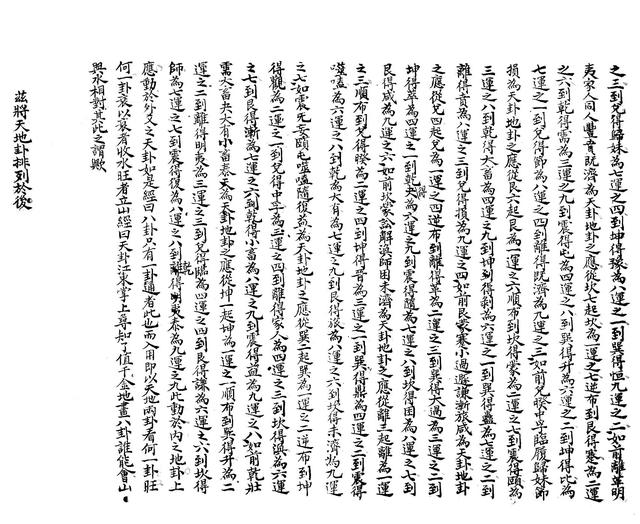 之三到兌得歸妹為七運之四到坤得豫為八運之一到巽得恒九運之二如前離革明
夷家人同人豐賁既濟為天卦地卦之應從坎七起坎為一運之七逆布到艮得蹇為二運
之六到乾得需為三運之九到震得屯為四運之八到巽得井為六運之二到坤得比為
七運之一到兌得節為八運之四到離得既濟為九運之三如前兌睽中孚臨履歸妹節
損為天卦地卦之應從艮六起艮為一運之六順布到坎得蒙為二運之七到震得頤為
三運之八到乾得大畜為四運之九到坤到得剝為六運之一到巽得蠱為七運之二到
離得賁為八運之三到兌得損為九運之四如前艮蒙蹇小過遯謙漸旅咸為天卦地卦
之應從兌四起兌為一運之四逆布到離得革為二運之三到巽得大過為三運之二到
坤得萃為四運之一到乾得夬為六運之九到震得隨為七運之八到坎得困為八運之七到
艮得咸為九運之六如前坎蒙訟解渙師困未濟為天卦地卦之應從離三起離為一運
之三順布到兌得睽為二運之四到坤得晉為三運之一到巽得鼎為四運之二到震得
噬嗑為六運之八到乾為大有為七運之九到艮得旅為八運之六到坎得未濟為九運
之七如震无妄頤屯噬嗑隨復益為天卦地卦之應從巽二起巽為一運之二逆布到坤
得觀為二運之一到兌得中孚為三運之四到離得家人為四運之三到坎得渙為六運
之七到艮得漸為七運之六到乾得小畜為八運之九到震得益為九運之八如前乾壯
需大畜夬大有小畜泰天為天卦地卦之應從坤一起坤為一運之一順布到巽得升為二
運之二到離得明夷為三運之三到兌得臨為四運之四到艮得謙為六運之六到坎得
師為七運之七到震得復為八運之八到乾得泰為九運之九此動於內之地卦上
應動於外爻之天卦如是經曰八卦只有一卦通者此也而入用即以天地兩卦看何一卦旺
何一卦衰以衰者收水旺者立山經曰天卦江東掌上尋知了值千金地畫八卦誰能會山
與水相對其此之謂歟
茲將天地卦排列於後